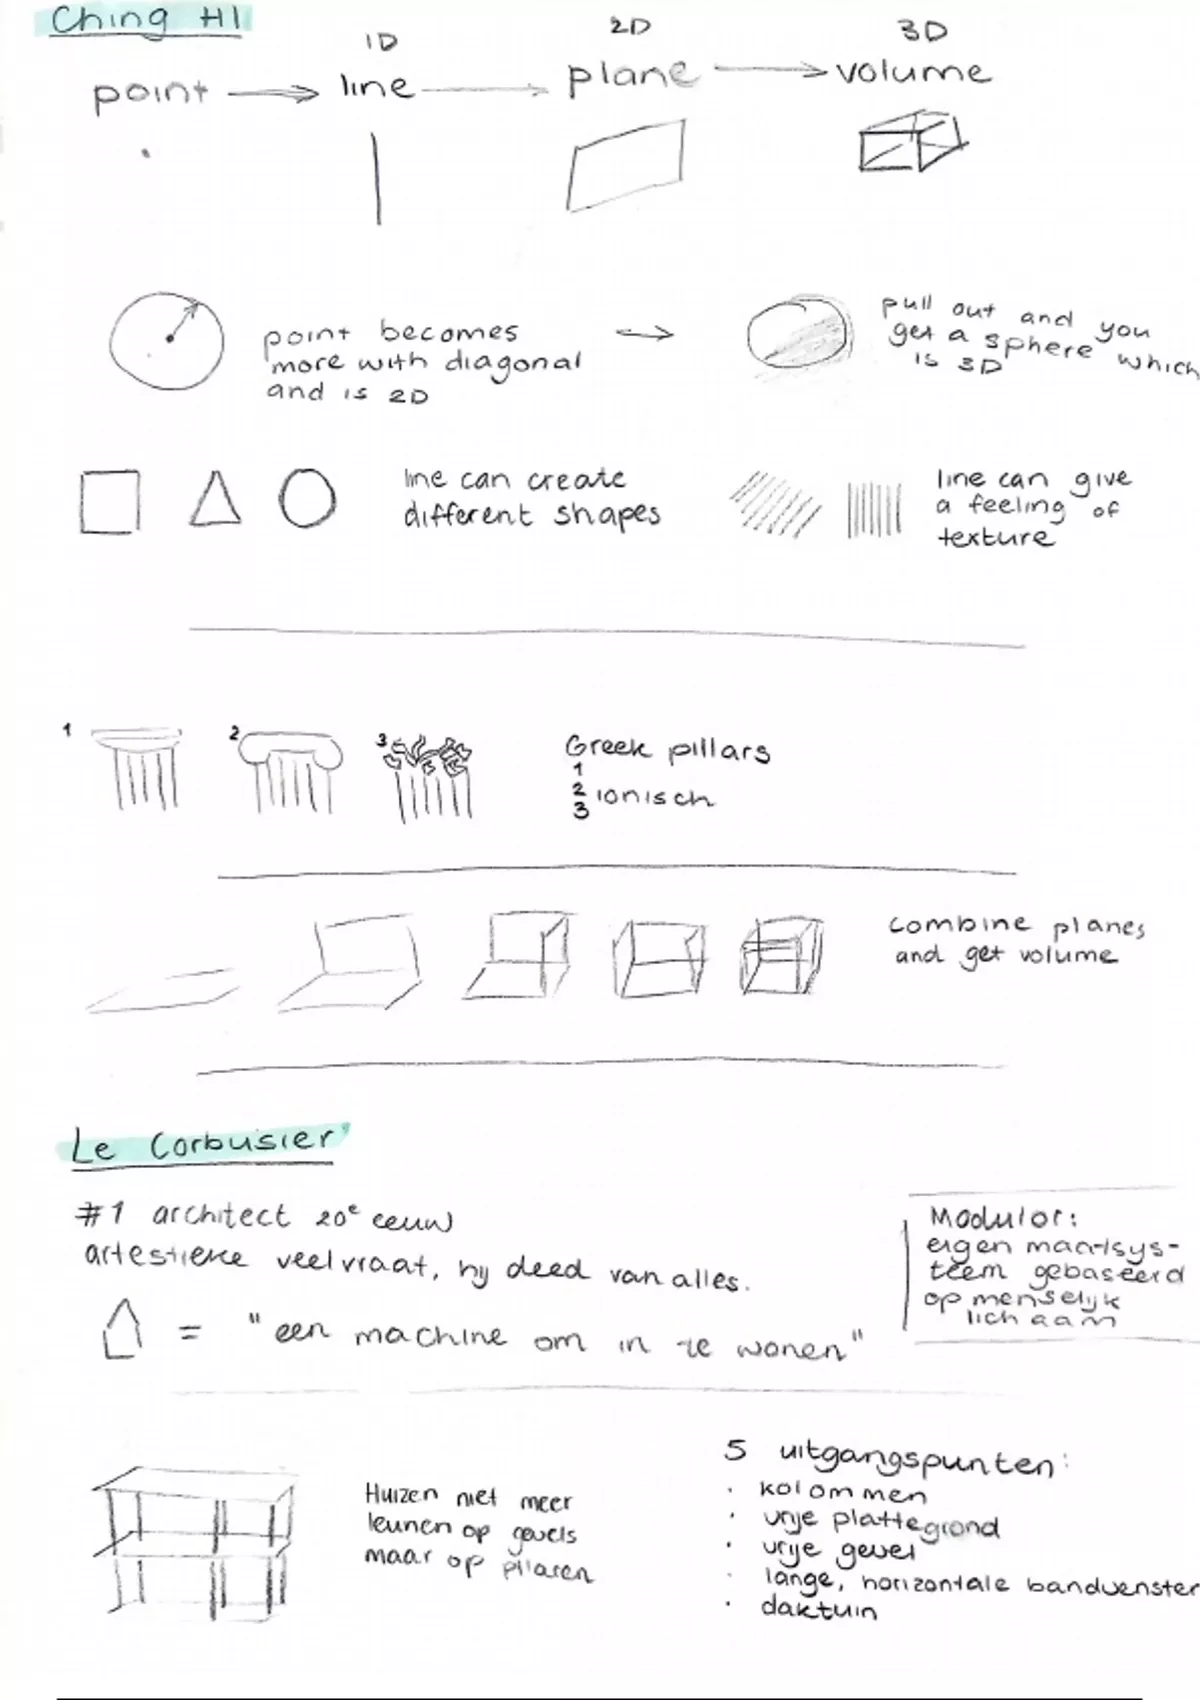 Ching H1
1D 2D 3D
point line plane volume
point becomes
more with diagonal
and is 2D
pull out and you
get a sphere which
is 3D
line can create
different shapes
line can give
a feeling of
texture
1 2 3
Greek pillars
1
2 ionisch
3
combine planes
and get volume
Le Corbusier
#1 architect 20e eeuw
artestieke veelvraat, hij deed van alles.
= "een machine om in te wonen"
Modulor:
eigen maatsys-
teem gebaseerd
op menselijk
lichaam
Huizen niet meer
leunen op gevels
maar op pilaren
5 uitgangspunten:
· kolommen
· vrije plattegrond
· vrije gevel
· lange, horizontale bandvenster
· daktuin